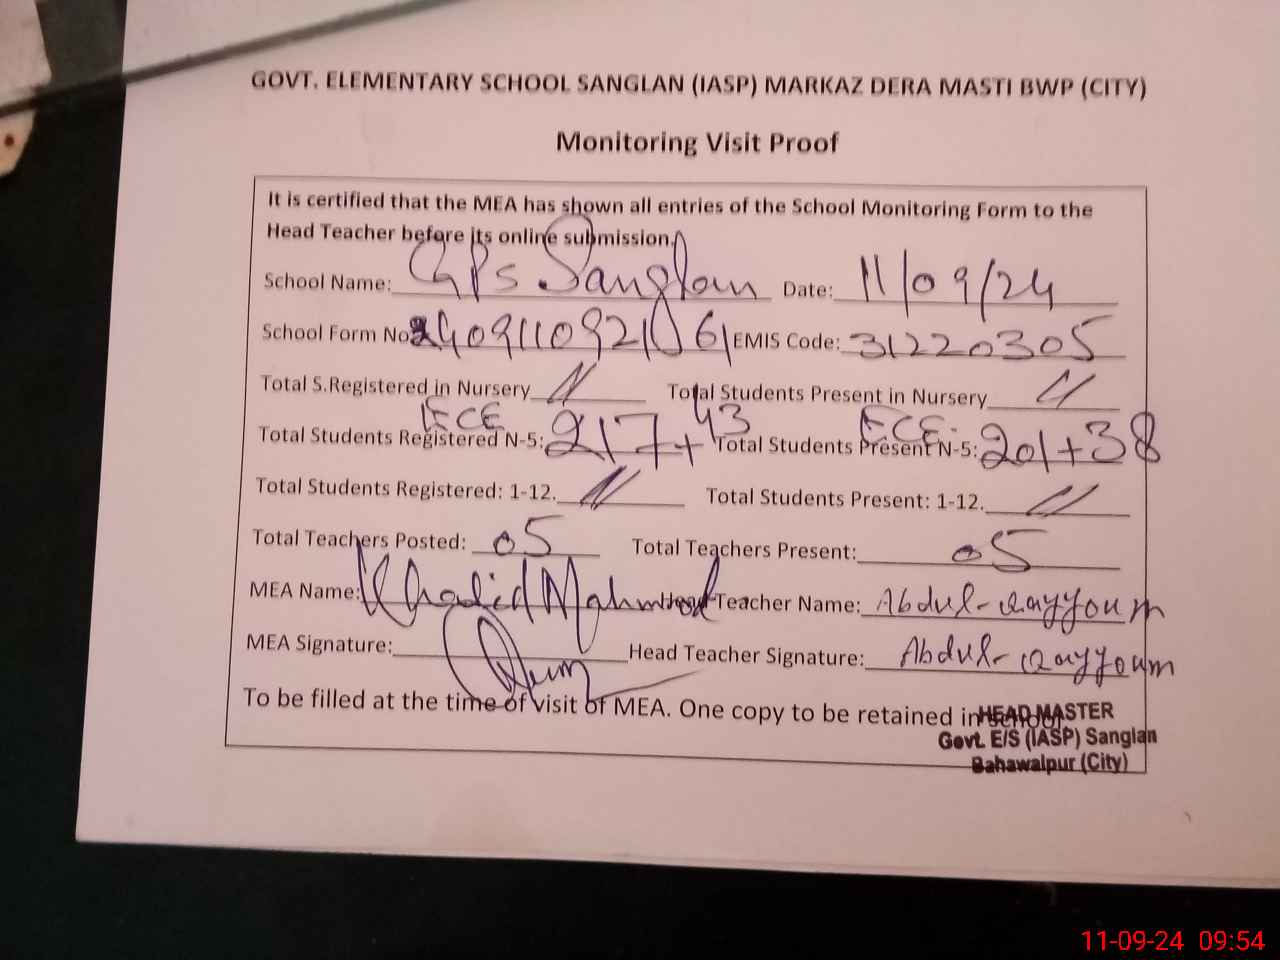 GOVT. ELEMENTARY SCHOOL SANGLAN (IASP) MARKAZ DERA MASTI BWP (CITY)
Monitoring Visit Proof
It is certified that the MEA has shown all entries of the School Monitoring Form to the
Head Teacher before its online submission.
School Name: GPS Sanglan Date: 11/09/24
School Form No. EMIS Code: 31220305
Total S.Registered in Nursery // Total Students Present in Nursery //
Total Students Registered N-5: ECE 217+43 Total Students Present N-5: ECE 201+38
Total Students Registered: 1-12. // Total Students Present: 1-12. //
Total Teachers Posted: 05 Total Teachers Present: 05
MEA Name: Khalid Mahmood Head Teacher Name: Abdul-Qayyoum
MEA Signature: Head Teacher Signature: Abdul-Qayyoum
To be filled at the time of visit of MEA. One copy to be retained in school
HEAD MASTER
Govt. E/S (IASP) Sanglan
Bahawalpur (City)
11-09-24 09:54